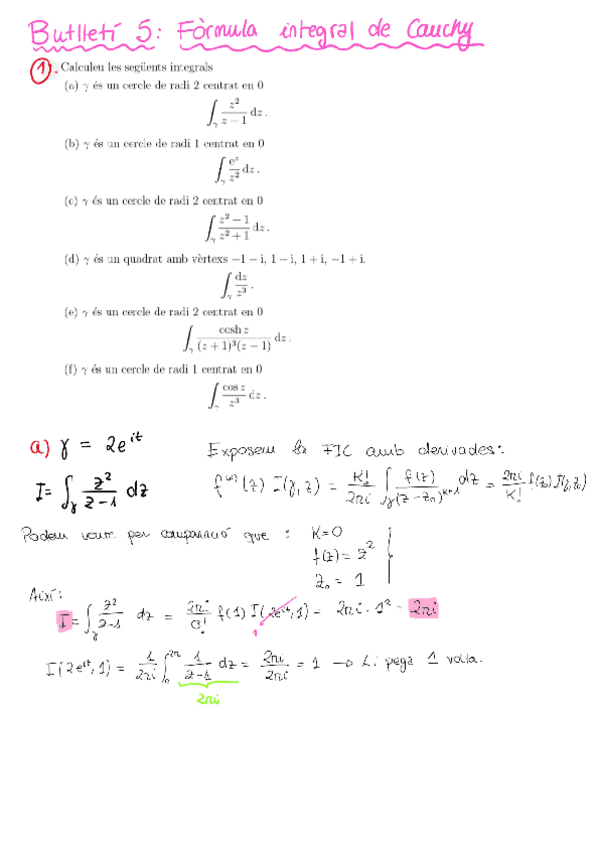 Butlletí 5: Fòrmula integral de Cauchy
1. Calculeu les següents integrals
(a) γ és un cercle de radi 2 centrat en 0
∫_γ z²/(z − 1) dz .
(b) γ és un cercle de radi 1 centrat en 0
∫_γ e^z/z² dz .
(c) γ és un cercle de radi 2 centrat en 0
∫_γ (z² − 1)/(z² + 1) dz .
(d) γ és un quadrat amb vèrtexs −1 − i, 1 − i, 1 + i, −1 + i.
∫_γ dz/z³ .
(e) γ és un cercle de radi 2 centrat en 0
∫_γ cosh z/((z + 1)³(z − 1)) dz .
(f) γ és un cercle de radi 1 centrat en 0
∫_γ cos z/z³ dz .
a) γ = 2e^{it} Exposem la FIC amb derivades:
I = ∫_γ z²/(z−1) dz f^{(k)}(z) I(γ,z) = K!/2πi ∫_γ f(z)/(z−z₀)^{k+1} dz = 2πi/K! f(z₀) I(γ,z₀)
Podem veure per comparació que : K=0
f(z) = z²
z₀ = 1
Així:
I = ∫_γ z²/(z−1) dz = 2πi/0! f(1) I(2e^{it},1) = 2πi · 1² = 2πi
1
I(2e^{it},1) = 1/2πi ∫_0^{2π} 1/(z−1) dz = 2πi/2πi = 1 → Li pega 1 volta.
2πi